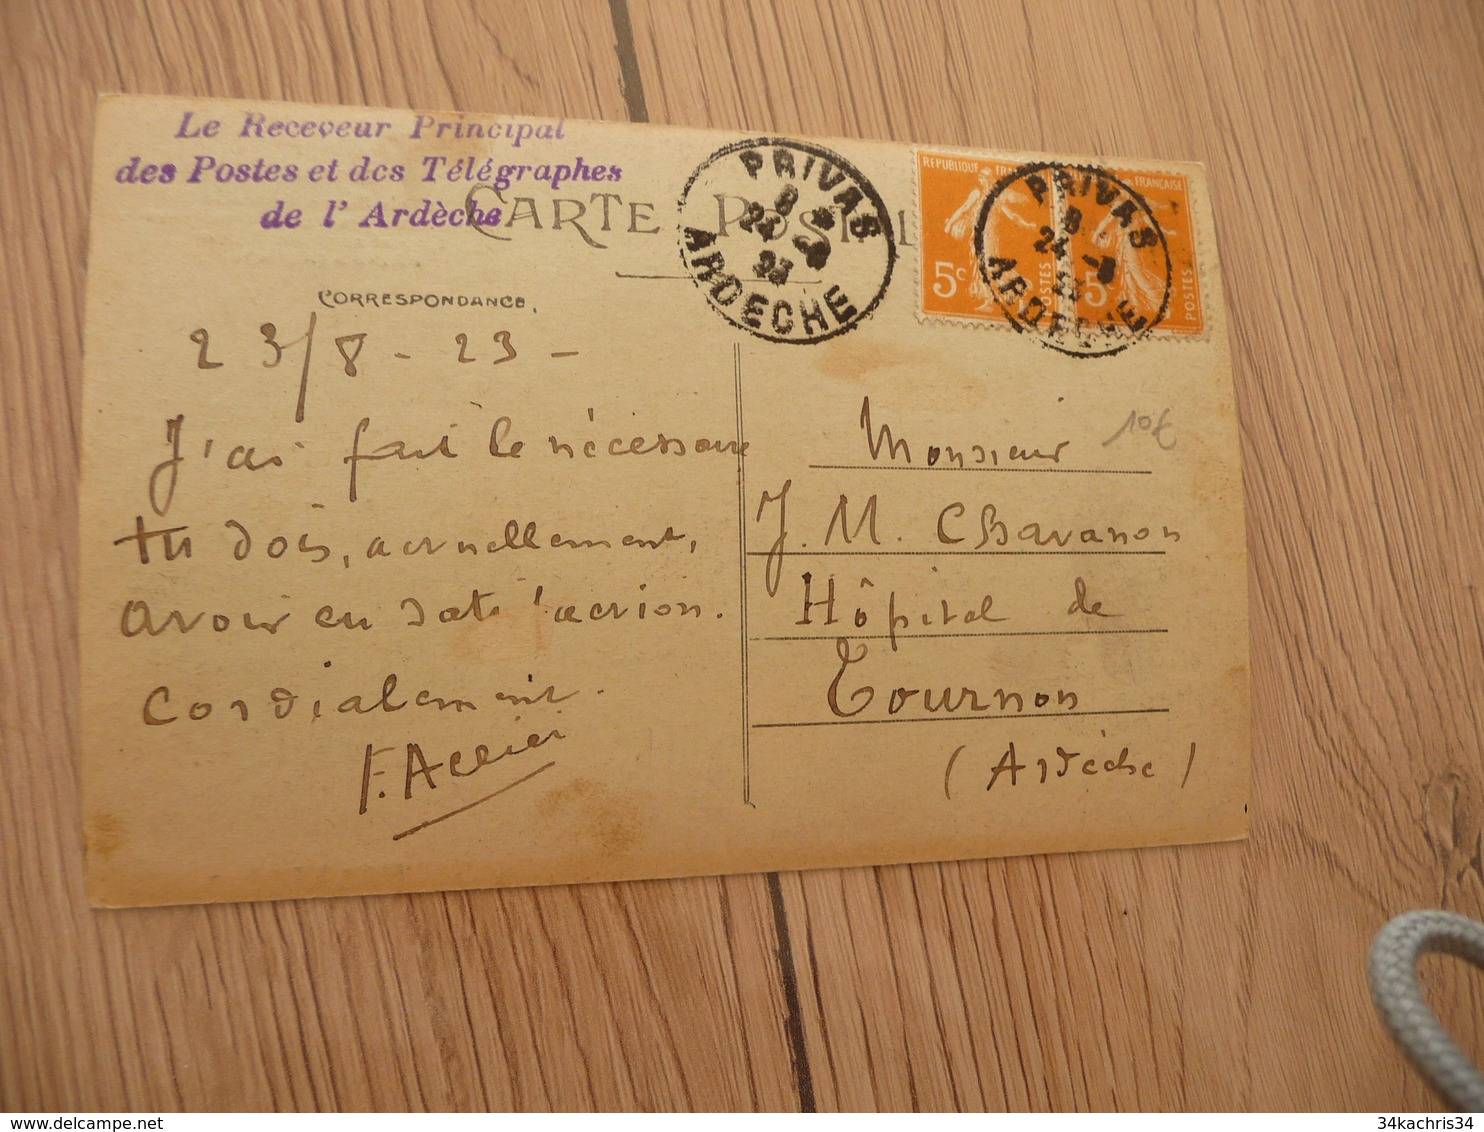 Le Receveur Principal
des Postes et des Télégraphes
de l'Ardèche
CARTE POSTALE
CORRESPONDANCE
23/8-23-
J'ai fait le nécessaire
tu dois, actuellement,
avoir eu satisfaction.
Cordialement.
PRIVAS
8
24 -8
23
ARDECHE
REPUBLIQUE FRANÇAISE
5c
POSTES
PRIVAS
8
24 -8
23
ARDECHE
FRANÇAISE
5
POSTES
10€
Monsieur
J. M. Chavanon
Hôpital de
Tournon
(Ardèche)
34kachris34